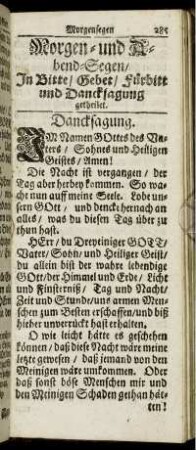 Morgensegen 285
Morgen- und A-
bend-Segen/
In Bitte/ Gebet/ Fürbitt
und Dancksagung
getheilet.
Dancksagung.
IM Namen GOttes des Va-
ters/ Sohnes und Heiligen
Geistes/ Amen!
Die Nacht ist vergangen/ der
Tag aber herbey kommen. So wa-
che nun auff meine Seele. Lobe un-
sern GOtt/ und dencke hernach an
alles/ was du diesen Tag über zu
thun hast.
HErr/ du Dreyeiniger GOTT/
Vater/ Sohn/ und Heiliger Geist/
du allein bist der wahre lebendige
GOtt/ der Himmel und Erde/ Licht
und Finsterniß/ Tag und Nacht/
Zeit und Stunde/ uns armen Men-
schen zum Besten erschaffen/ und biß
hieher unverrückt hast erhalten.
O wie leicht hätte es geschehen
können/ daß diese Nacht wäre meine
letzte gewesen/ daß jemand von den
Meinigen wäre umkommen. Oder
daß sonst böse Menschen mir und
den Meinigen Schaden gethan hät-
ten!